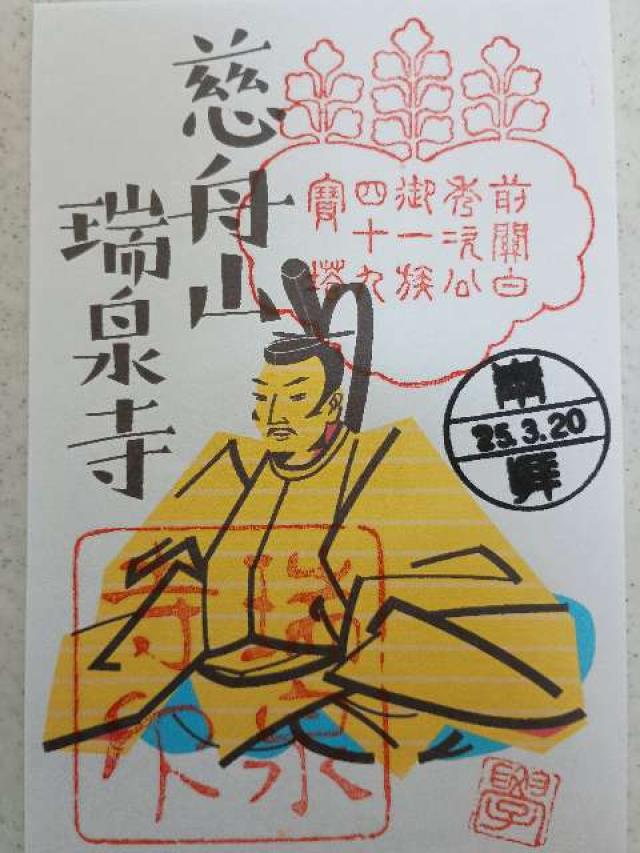 慈舟山
瑞泉寺
前關白
秀次公
御一族
四十九
寶塔
奉
25.3.20
拜
瑞泉
寺印
學